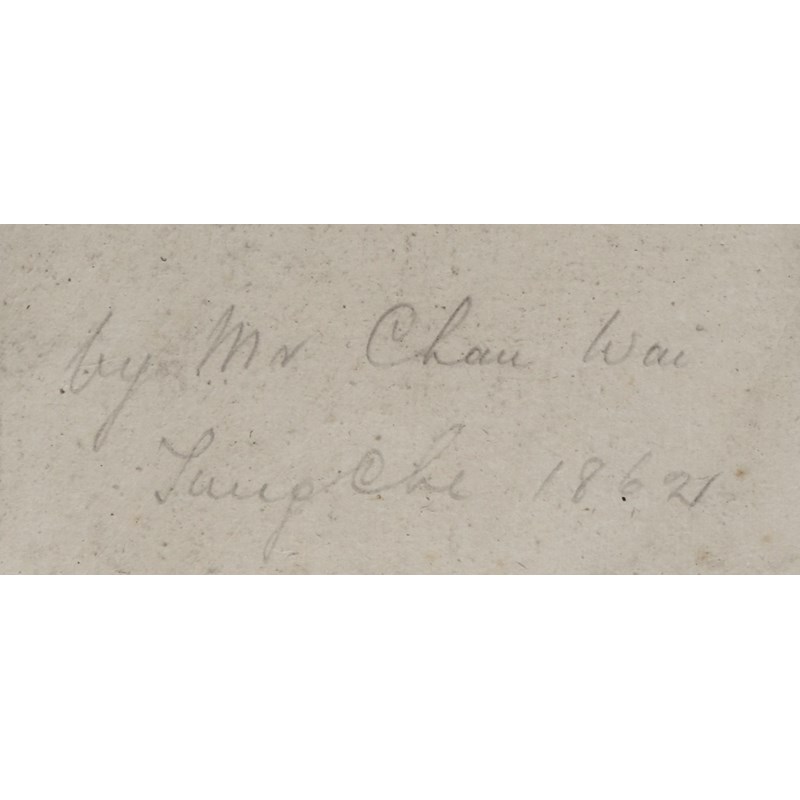 by Mr Chau Wai
Tung Che 1862